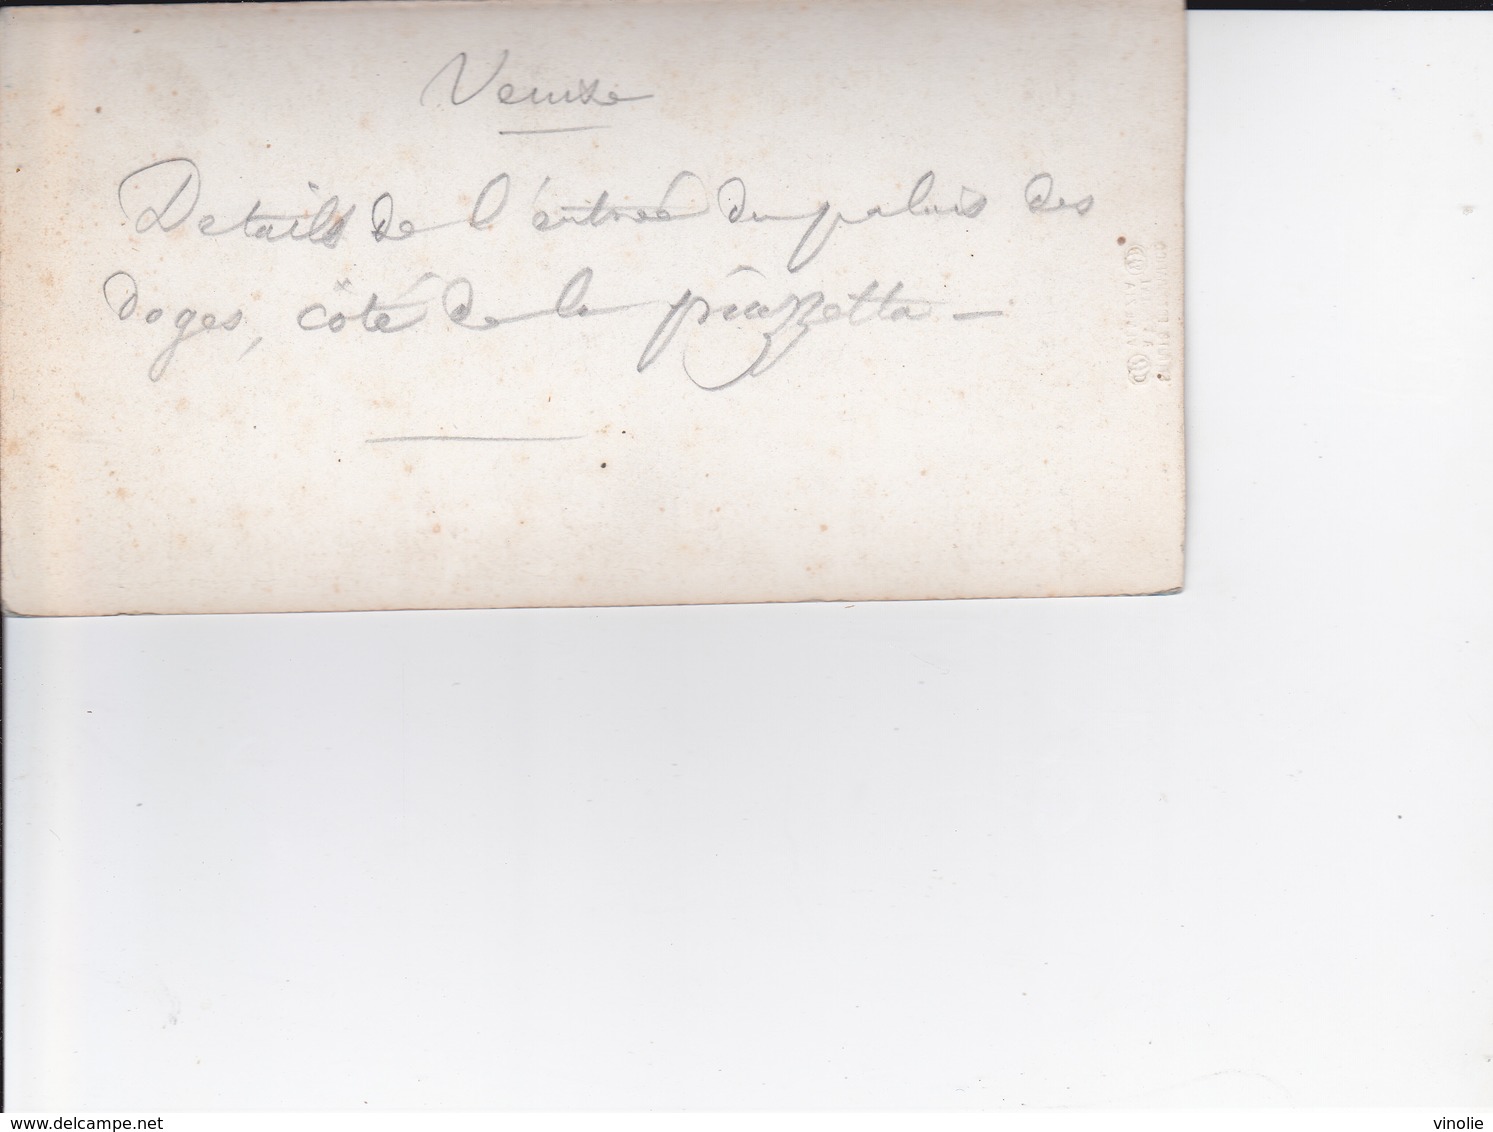 Venise
Details de l'entrée du palais des
doges, côté de la piazzetta —
www.delcampe.net
vinolie